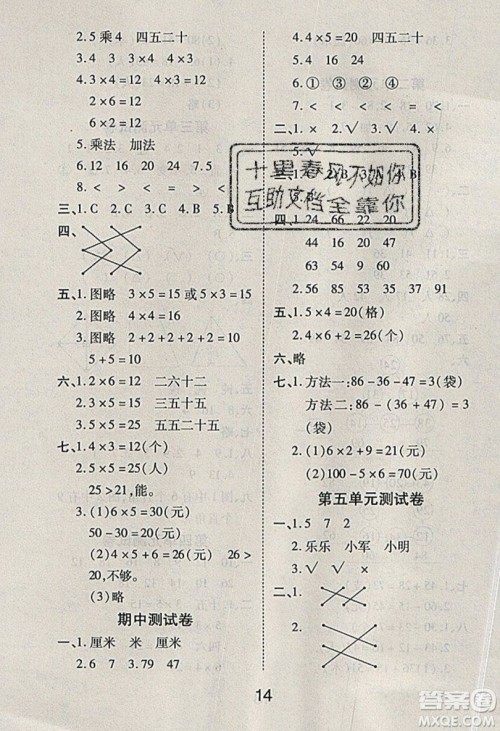 2.5乘4 四五二十
3.4×3 3×4 4×3
4.3×4=12 4×3=12
2×6=12
6×2=12
5.乘法 加法
6.12 20 24 16 15
8.< > < = > =
三、1.C 2.B 3.C 4.C
四、
五、1.图略 3×5=15(或5×3=15)
2.图略
3.图略 2+2+2+2+2=10
5+5=10
六、1.2×6=12 二六十二
2.3×5=15 三五十五
3.5×5=25 五五二十五
七、1.4×3=12(个)
2.5×5=25(人)
25>21,能。
3.(1)6×5=30(元)
50-30=20(元)
(2)4×5+6=26(元) 26>
20,不够。
(3)略
期中测试卷
一、1.厘米 米 厘米
2.6 7 3.79 47
4.4×5=20 四五二十
5.4 16 24
6.① ④ ② ③
7.< < < = < >
二、1.× 2.× 3.√ 4.×
5.√
十里春风不如你
互助文档全靠你
四、1.24 66 22 20
44 64 60 24
2.90 55 35 37 91
五、1.5×4=20(格)
2.4×5+6=26(个)
六、略
七、1.方法一:86-36-47=3(袋)
方法二:86-(36+47)=
3(袋)
2.(1)6×2+9=21(元)
(2)6×5=30(元)
第五单元测试卷
一、1.5 7 2
2.乐乐 小军 小明
3.√ √ ×
二、1.
2.
14
答案圈
MXQE.COM